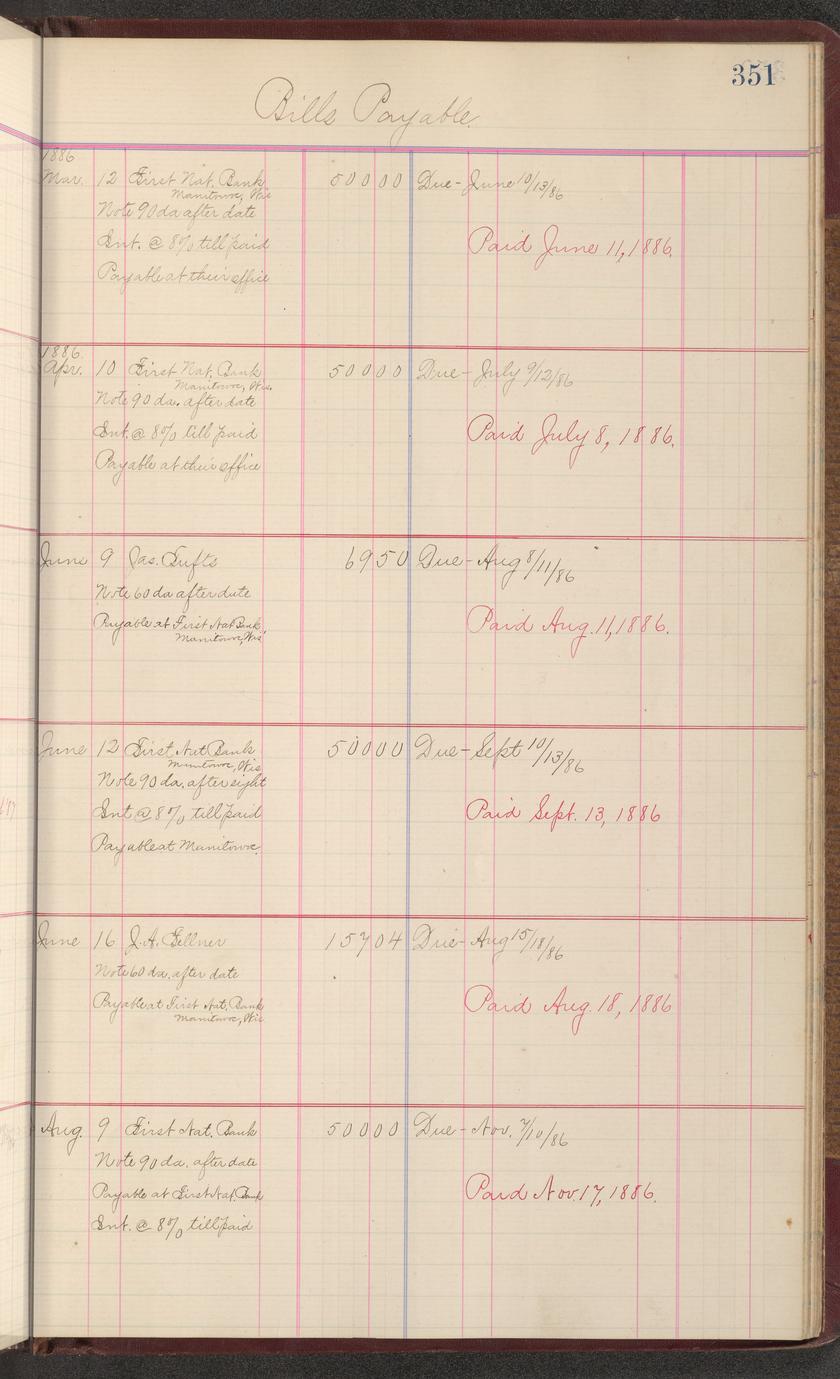 351
Bills Payable.
1886
Mar. 12 First Nat. Bank 50000 Due - June 10/13/86
Manitowoc, Wis
Note 90 da after date
Int. @ 8% till paid Paid June 11, 1886.
Payable at their office
1886.
Apr. 10 First Nat. Bank 50000 Due - July 9/12/86
Manitowoc, Wis.
Note 90 da. after date
Int. @ 8% till paid Paid July 8, 1886.
Payable at their office
June 9 Jas. Tufts 6950 Due - Aug 8/11/86
Note 60 da after date
Payable at First Nat Bank Paid Aug. 11, 1886.
Manitowoc, Wis
June 12 First Nat Bank 50000 Due - Sept 10/13/86
Manitowoc, Wis
Note 90 da. after sight
Int @ 8% till paid Paid Sept. 13, 1886
Payable at Manitowoc.
June 16 J. A. Gellner 15704 Due - Aug 15/18/86
Note 60 da. after date
Payable at First Nat. Bank Paid Aug. 18, 1886
Manitowoc, Wis
Aug. 9 First Nat. Bank 50000 Due - Nov. 7/10/86
Note 90 da. after date
Payable at First Nat. Bank Paid Nov 17, 1886.
Int. @ 8% till paid